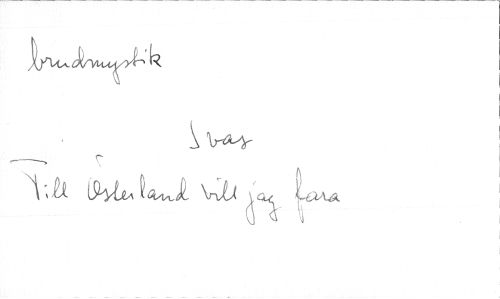 brudmystik
Svar
Till Österland vill jag fara